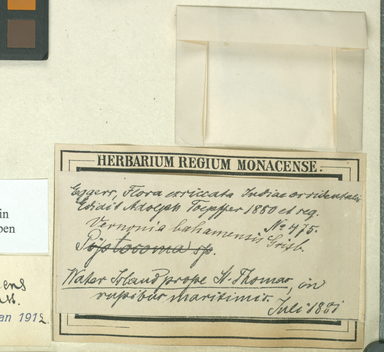 HERBARIUM REGIUM MONACENSE.
Eggers, Flora exsiccata Indiae occidentalis
Edidit Adolph Toepffer 1880 et seq.
No 475.
Vernonia bahamensis Griseb.
Piptocoma sp.
Water Island prope St. Thomas, in
rupibus maritimis.
Juli 1881
in
pen
ens
an 1912